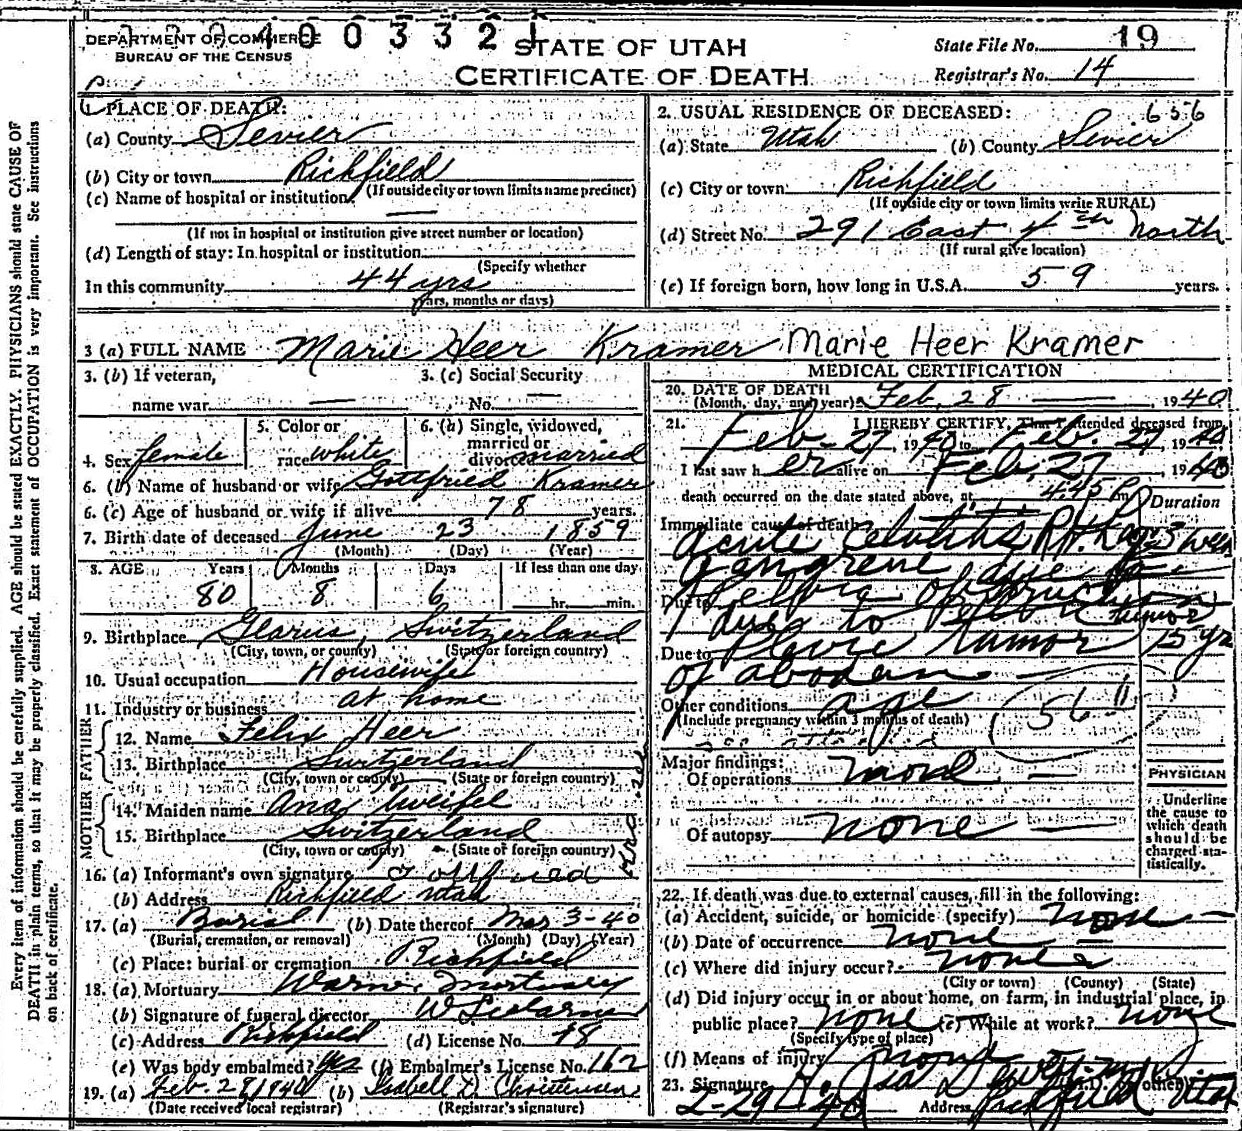 DEPARTMENT OF COMMERCE
BUREAU OF THE CENSUS
400332
STATE OF UTAH
CERTIFICATE OF DEATH
State File No. 19
Registrar's No. 14
1. PLACE OF DEATH:
(a) County Sevier
(b) City or town Richfield
(If outside city or town limits name precinct)
(c) Name of hospital or institution —
(If not in hospital or institution give street number or location)
(d) Length of stay: In hospital or institution
(Specify whether
In this community 44 yrs
years, months or days)
2. USUAL RESIDENCE OF DECEASED: 656
(a) State Utah (b) County Sevier
(c) City or town Richfield
(If outside city or town limits write RURAL)
(d) Street No. 291 East 4th North
(If rural give location)
(e) If foreign born, how long in U.S.A. 59 years.
3 (a) FULL NAME Marie Heer Kramer Marie Heer Kramer
3. (b) If veteran, name war —
3. (c) Social Security No. —
4. Sex female
5. Color or race white
6. (a) Single, widowed, married or divorced married
6. (b) Name of husband or wife Gottfried Kramer
6. (c) Age of husband or wife if alive 78 years.
7. Birth date of deceased June 23 1859
(Month) (Day) (Year)
8. AGE Years Months Days If less than one day
80 8 6 hr. min.
9. Birthplace Glarus, Switzerland
(City, town, or county) (State or foreign country)
10. Usual occupation Housewife
11. Industry or business at home
FATHER
12. Name Felix Heer
13. Birthplace Switzerland
(City, town or county) (State or foreign country)
MOTHER
14. Maiden name Ana Zweifel
15. Birthplace Switzerland
(City, town or county) (State or foreign country)
16. (a) Informant's own signature
(b) Address Richfield Utah
17. (a) Burial (b) Date thereof Mar 3-40
(Burial, cremation, or removal) (Month) (Day) (Year)
(c) Place: burial or cremation Richfield
18. (a) Mortuary Mortuary
(b) Signature of funeral director
(c) Address Richfield (d) License No. 48
(e) Was body embalmed? Yes (f) Embalmer's License No. 162
19. (a) Feb. 28, 1940 (b) Isabell D. Christensen
(Date received local registrar) (Registrar's signature)
MEDICAL CERTIFICATION
20. DATE OF DEATH
(Month, day, and year) Feb, 28 — 1940
21. I HEREBY CERTIFY, That I attended deceased from
Feb-27, 1940 to Feb. 27, 1940
I last saw her alive on Feb, 27, 1940
death occurred on the date stated above, at 4:45 P m
Duration
Immediate cause of death
acute Celulitis Rt. Leg 3 week
gangrene due to
Due to Pelvic Obstruction
due to Pelvic tumor
Due to Pelvic tumor 15 yr
of aboden
Other conditions age
(Include pregnancy within 3 months of death) 56
Major findings:
Of operations none —
Of autopsy none —
PHYSICIAN
Underline the cause to which death should be charged statistically.
22. If death was due to external causes, fill in the following:
(a) Accident, suicide, or homicide (specify) none —
(b) Date of occurrence none —
(c) Where did injury occur? none
(City or town) (County) (State)
(d) Did injury occur in or about home, on farm, in industrial place, in
public place? none (e) While at work? none
(Specify type of place)
(f) Means of injury none
23. Signature (M.D. or other)
2-29-40 Address Richfield Utah
Every item of information should be carefully supplied. AGE should be stated EXACTLY. PHYSICIANS should state CAUSE OF
DEATH in plain terms, so that it may be properly classified. Exact statement of OCCUPATION is very important. See instructions
on back of certificate.